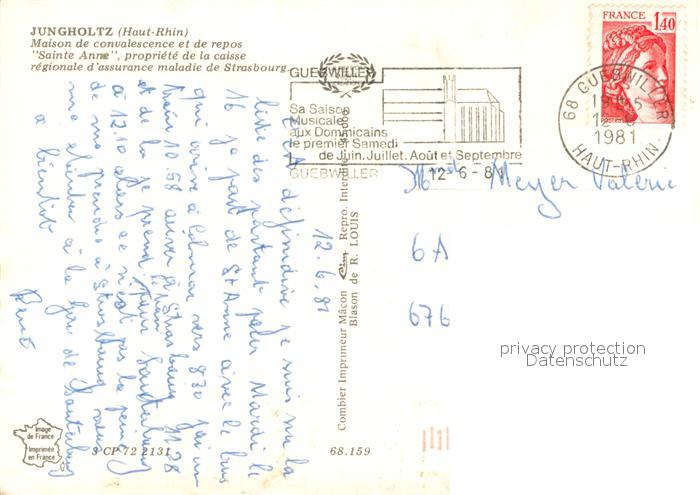 JUNGHOLTZ (Haut-Rhin)
Maison de convalescence et de repos
"Sainte Anne", propriété de la caisse
régionale d'assurance maladie de Strasbourg.
GUEBWILLER
Sa Saison
Musicale
aux Dominicains
le premier Samedi
de Juin, Juillet, Août et Septembre
GUEBWILLER
12-6-81
FRANCE
1,40
68 GUEBWILLER
1981
HAUT-RHIN
Meyer Valérie
6A
676
privacy protection
Datenschutz
12.6.81
définitive je suis sur la
liste des partant pour Mardi le
16 je part de St Anne avec le bus
qui arrive à Colmar vers 830
train 10.58 Strasbourg 11.28
et de la je prend
à 12.10 alors ce n'est pas la peine
de me prendre à Strasbourg
à la gare de
à bientôt
René
Combier Imprimeur Mâcon
Repro. Interdite
Blason de R. LOUIS
Image
de France
Imprimée
en France
3 CP 72 2131
68.159